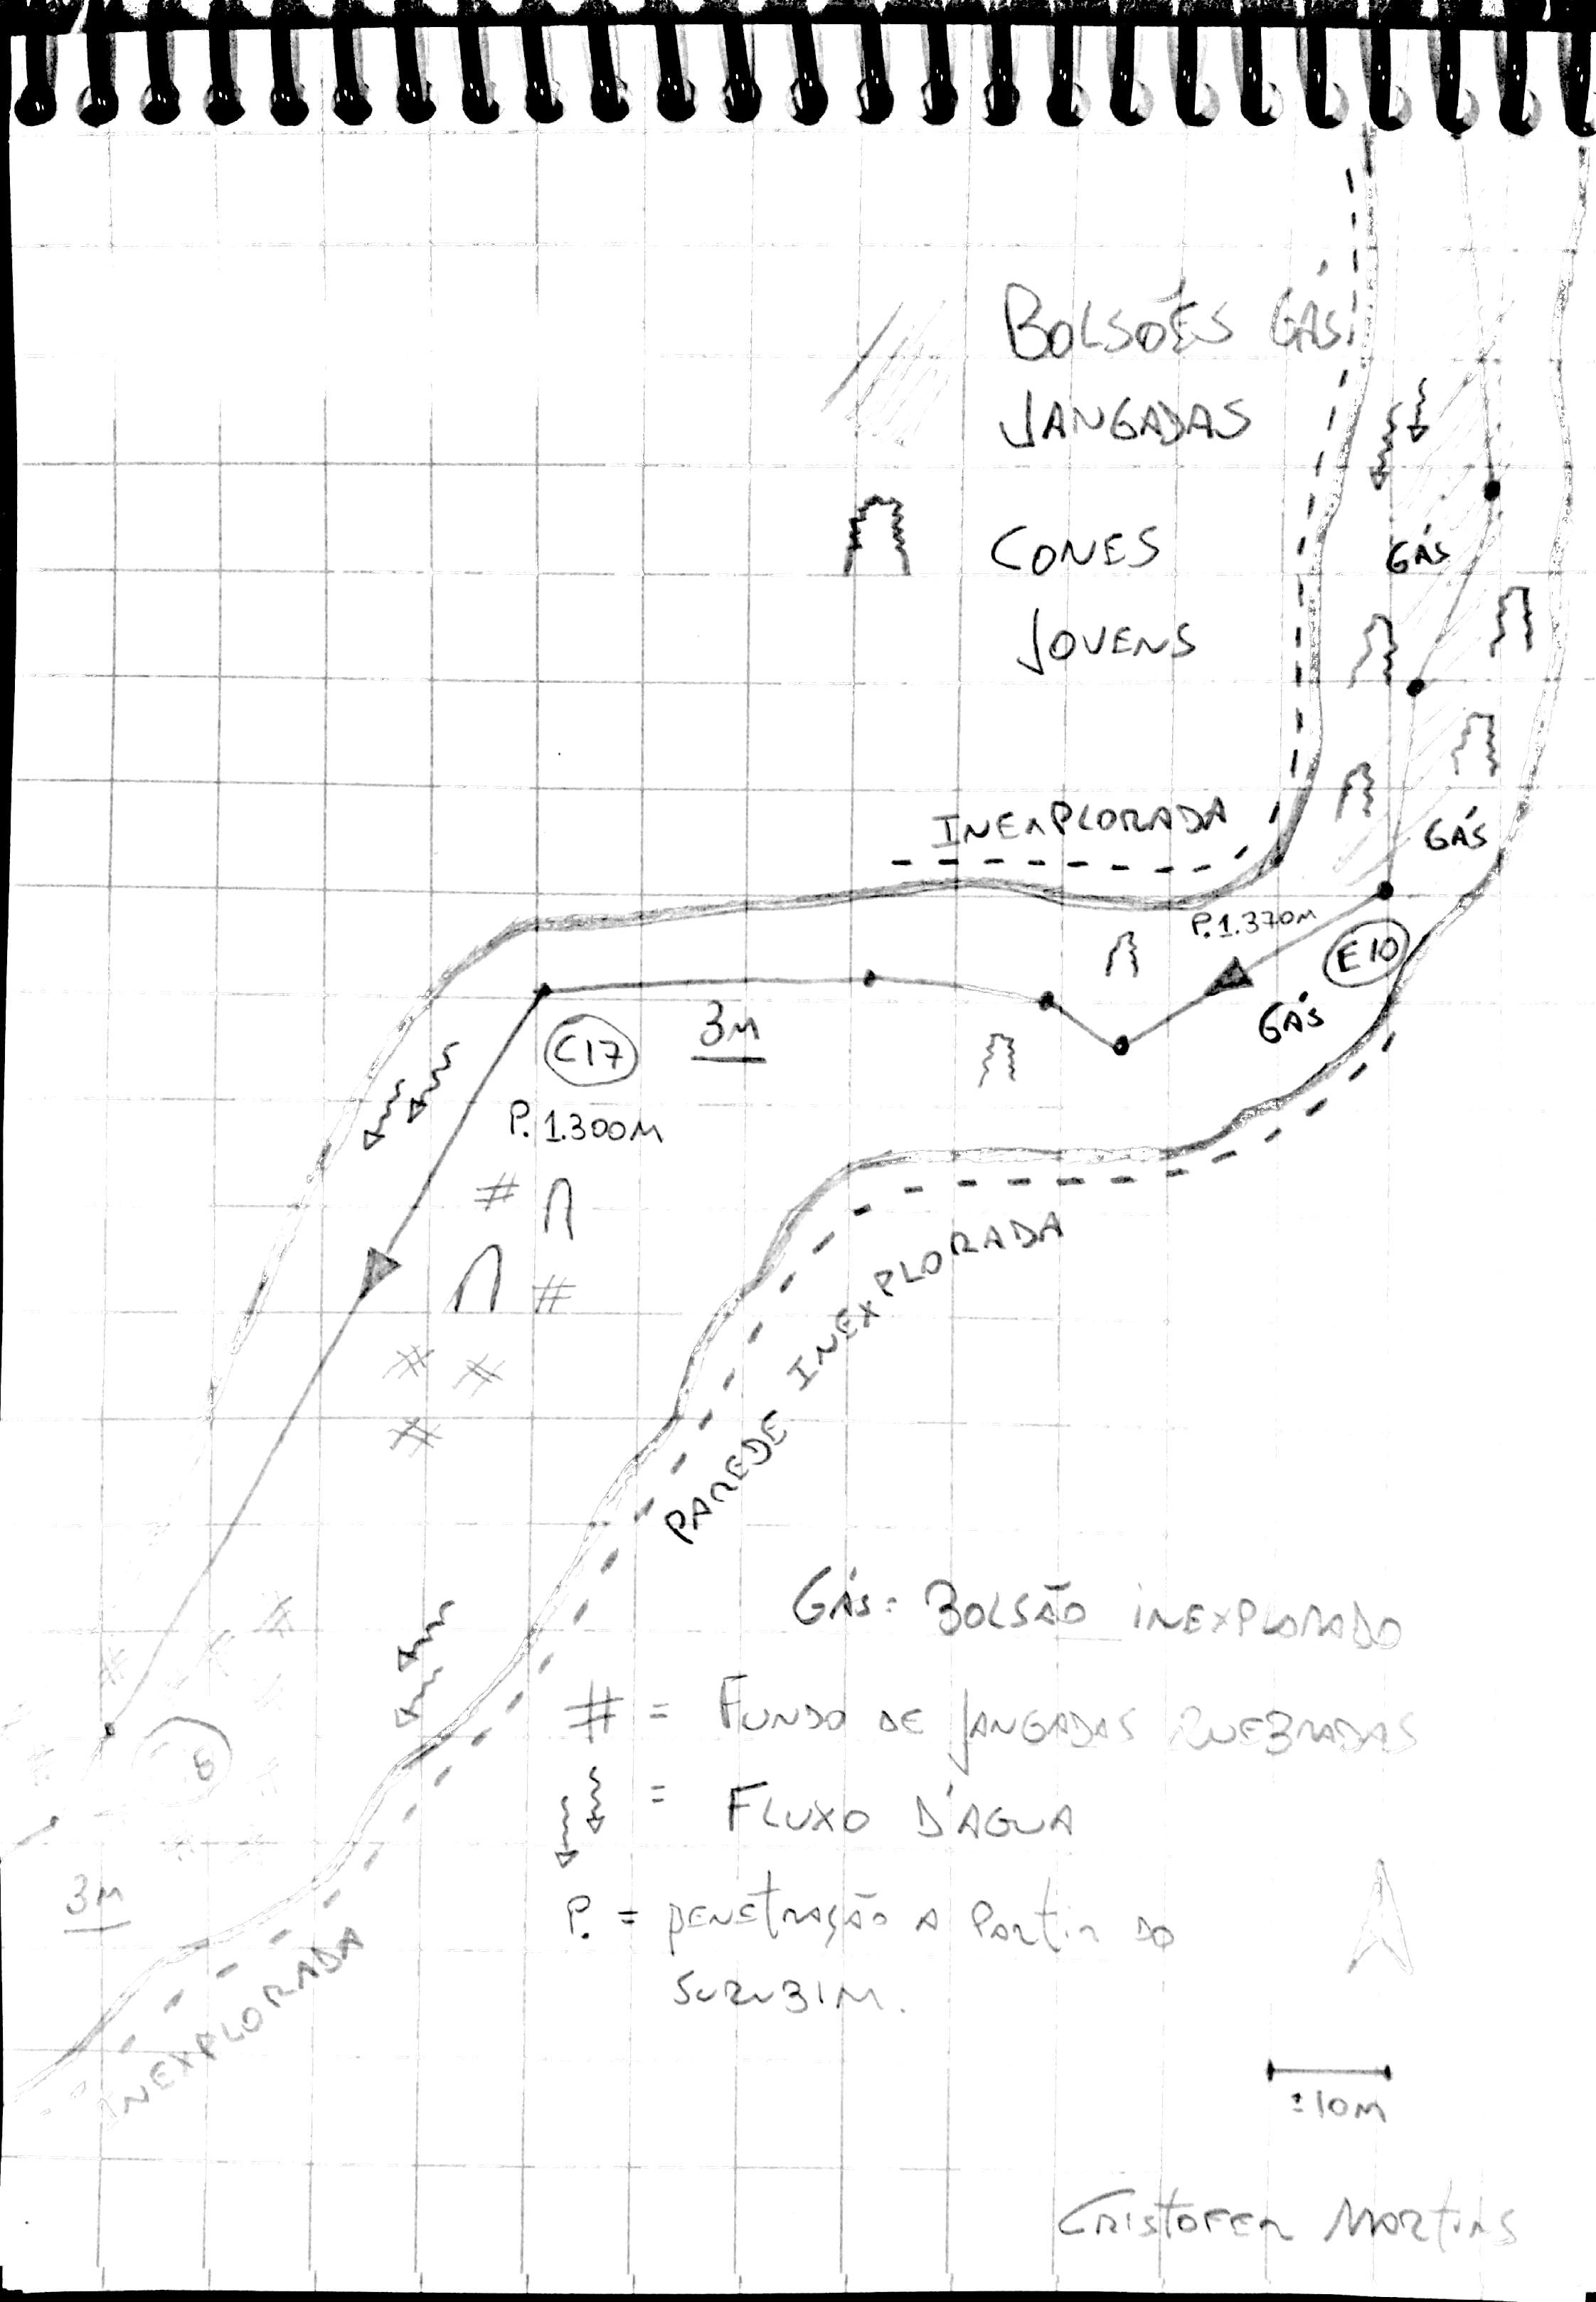 BOLSÕES GÁS
JANGADAS
CONES
JOVENS
GÁS
GÁS
INEXPLORADA
P.1.370M
E10
GÁS
3M
C17
P. 1.300M
# 
#
# #
#
PAREDE INEXPLORADA
GÁS: BOLSÃO INEXPLORADO
# = FUNDO DE JANGADAS QUEBRADAS
= FLUXO D'ÁGUA
P. = PENETRAÇÃO A PARTIR DO
SURUBIM.
3M
INEXPLORADA
±10M
CRISTOFER MARTINS